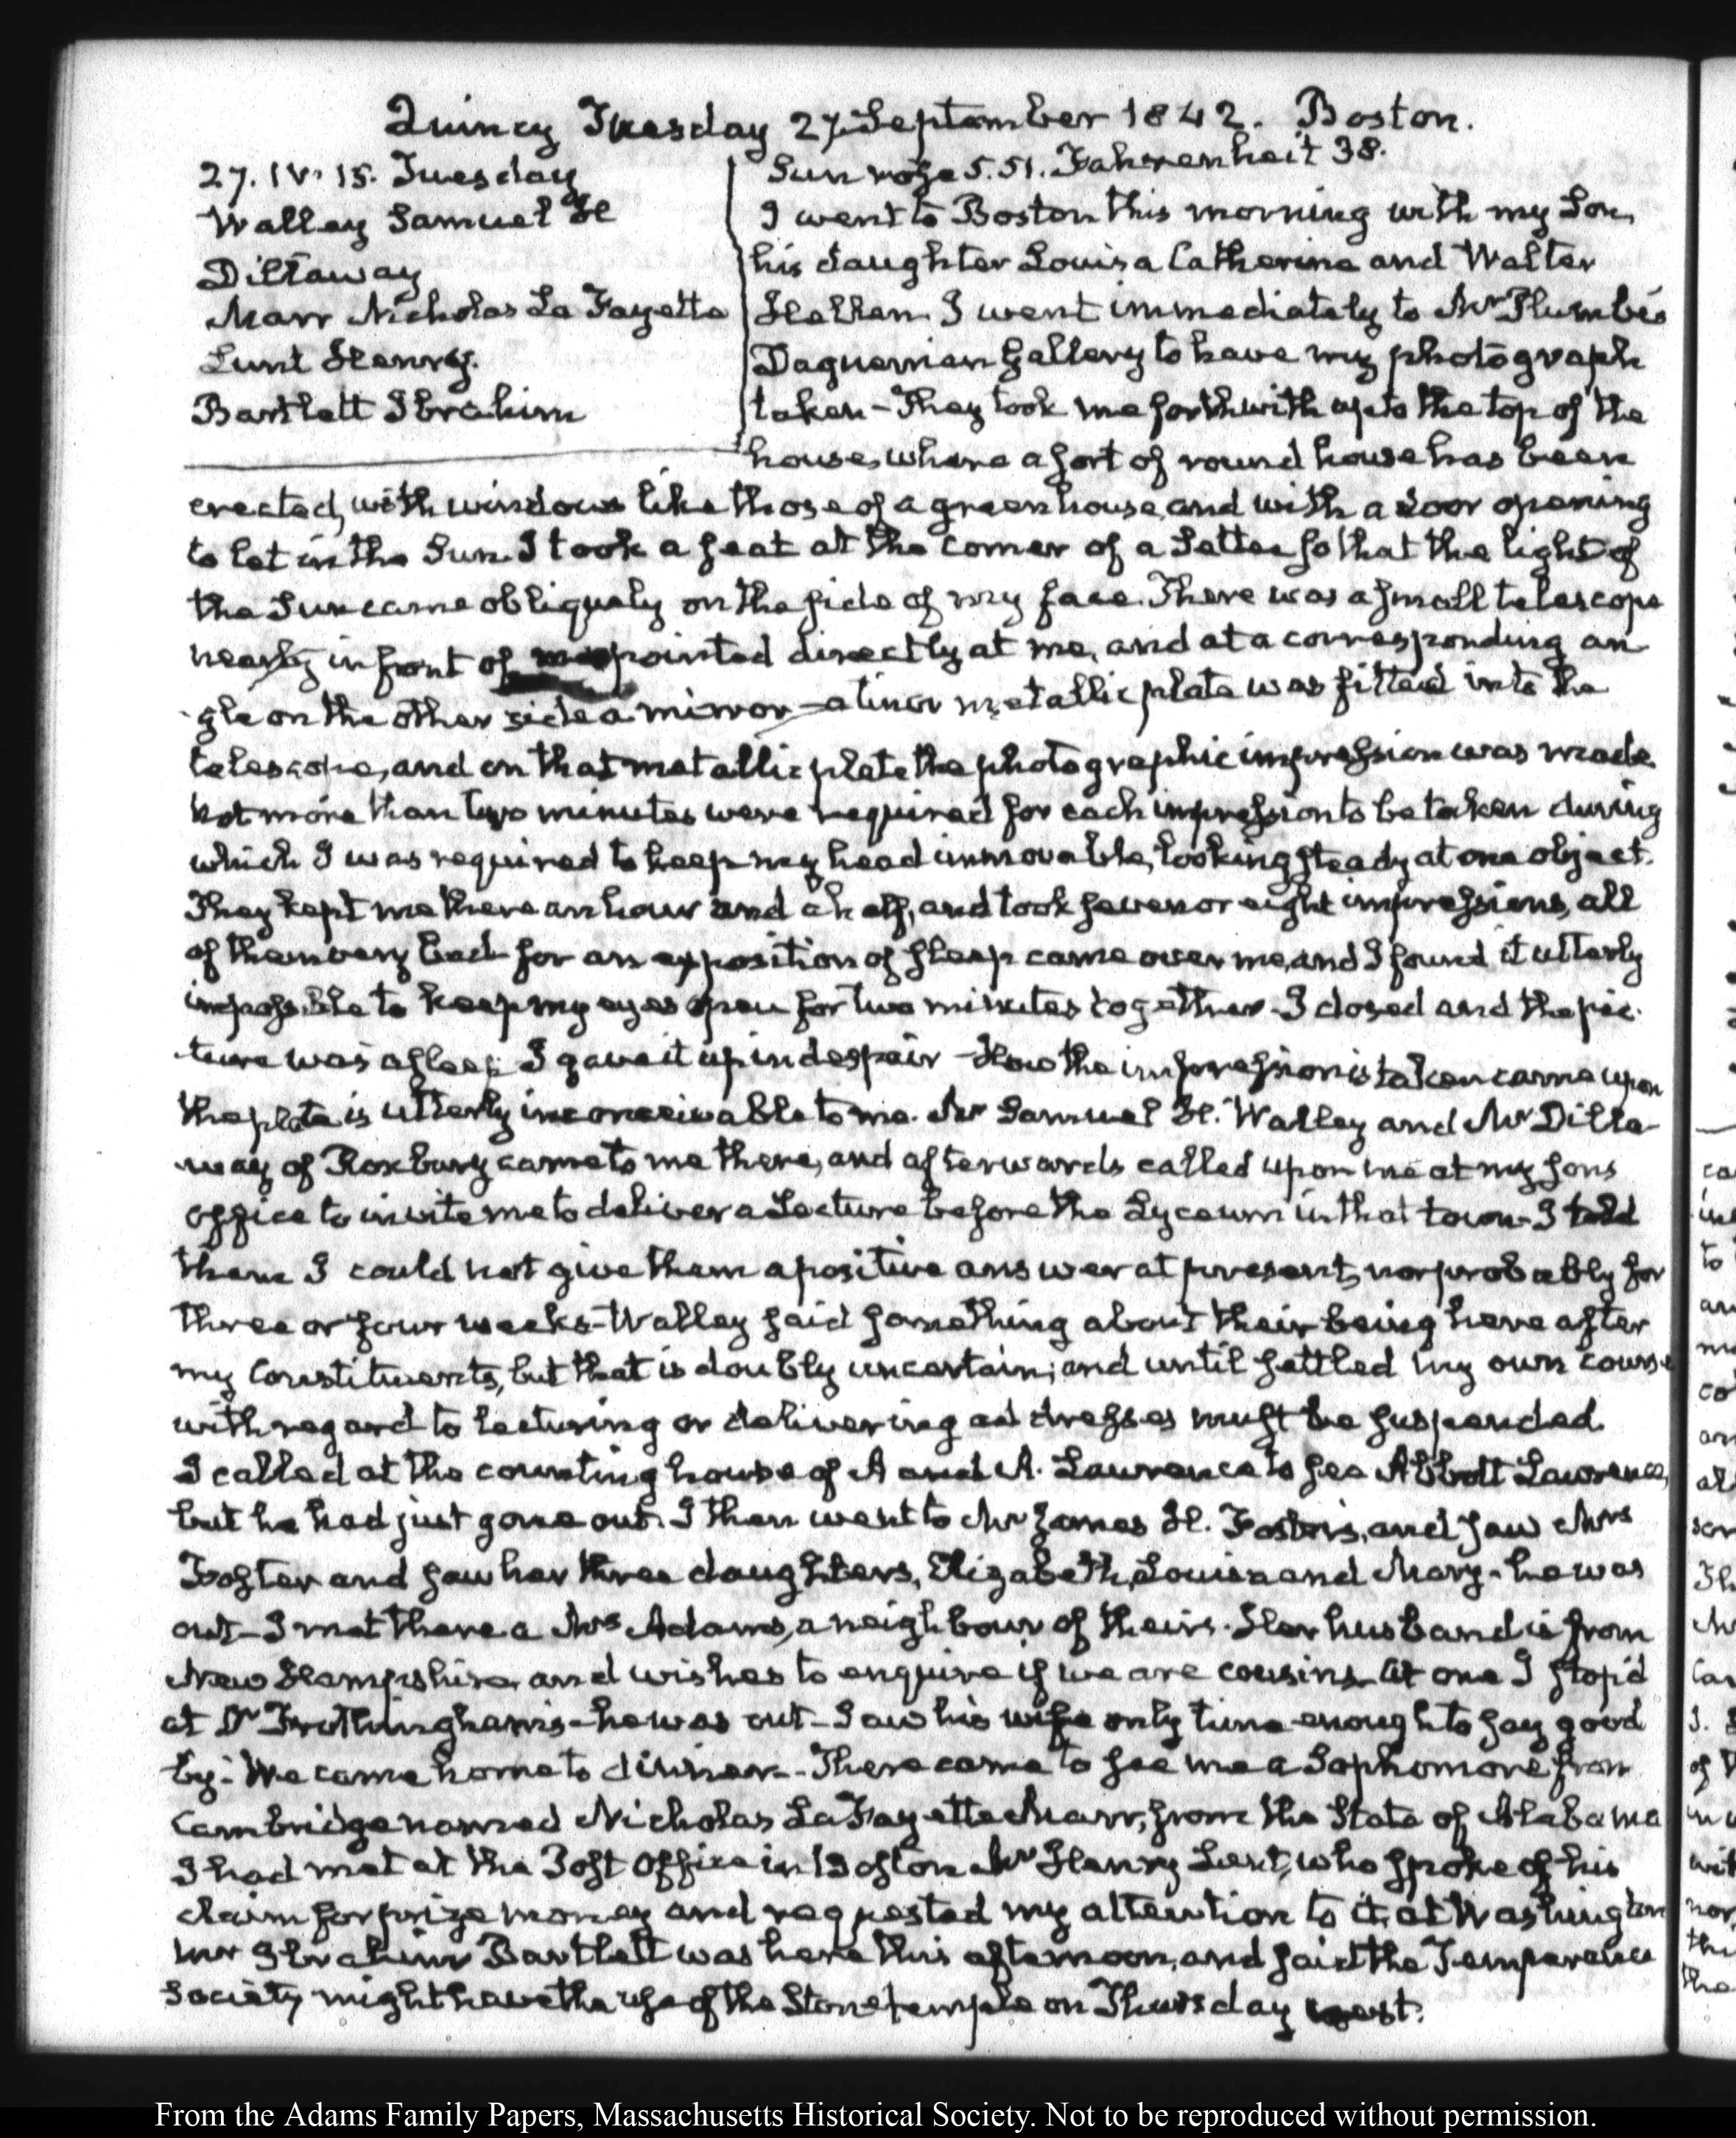 Quincy Tuesday 27. September 1842. Boston.
27. IV. 15. Tuesday
Walley Samuel H
Dillaway
Marr Nicholas La Fayette
Lunt Henry.
Bartlett Ibrahim
Sun rose 5.51. Fahrenheit 38.
I went to Boston this morning with my Son,
his daughter Louisa Catherine and Walter
Hellen. I went immediately to Mr Plumbe's
Daguerrian Gallery to have my photograph
taken - They took me forthwith up to the top of the
house, where a sort of round house has been
erected, with windows like those of a greenhouse, and with a door opening
to let in the Sun. I took a seat at the corner of a Settee so that the light of
the Sun came obliquely on the side of my face. There was a small telescope
nearly in front of pointed directly at me, and at a corresponding an-
gle on the other side a mirror - a metallic plate was fitted into the
telescope, and on that metallic plate the photographic impression was made
Not more than two minutes were required for each impression to be taken during
which I was required to keep my head immovable, looking steady at one object.
They kept me there an hour and a half, and took seven or eight impressions, all
of them very bad for an exposition of sleep came over me, and I found it utterly
impossible to keep my eyes open for two minutes together - I dozed and the pic-
ture was asleep I gave it up in despair - How the impression is taken came upon
the plate is utterly inconceivable to me. Mr Samuel H. Walley and Mr Dilla-
way of Roxbury came to me there, and afterwards called upon me at my sons
office to invite me to deliver a Lecture before the Lyceum in that town - I told
them I could not give them a positive answer at present, nor probably for
three or four weeks - Walley said something about their being here after
my Constituents, but that is doubly uncertain; and until settled my own course
with regard to lecturing or delivering addresses must be suspended
I called at the counting house of A and A. Lawrence to see Abbott Lawrence,
but he had just gone out. I then went to Mr James H. Foster's, and saw Mrs
Foster and saw her three daughters, Elizabeth, Louisa and Mary - he was
out - I met there a Mrs Adams, a neighbour of theirs. Her husband is from
New Hampshire, and wishes to enquire if we are cousins. At one I stop'd
at Dr Frothingham's - he was out - I saw his wife only time enough to say good
by - We came home to dinner - There came to see me a Sophomore from
Cambridge named Nicholas La Fayette Marr, from the State of Alabama
I had met at the Post Office in Boston Mr Henry Lunt, who spoke of his
claim for prize money and requested my attention to it, at Washington
Mr Ibrahim Bartlett was here this afternoon, and said the Temperance
Society might have the use of the Stone temple on Thursday next.
From the Adams Family Papers, Massachusetts Historical Society. Not to be reproduced without permission.